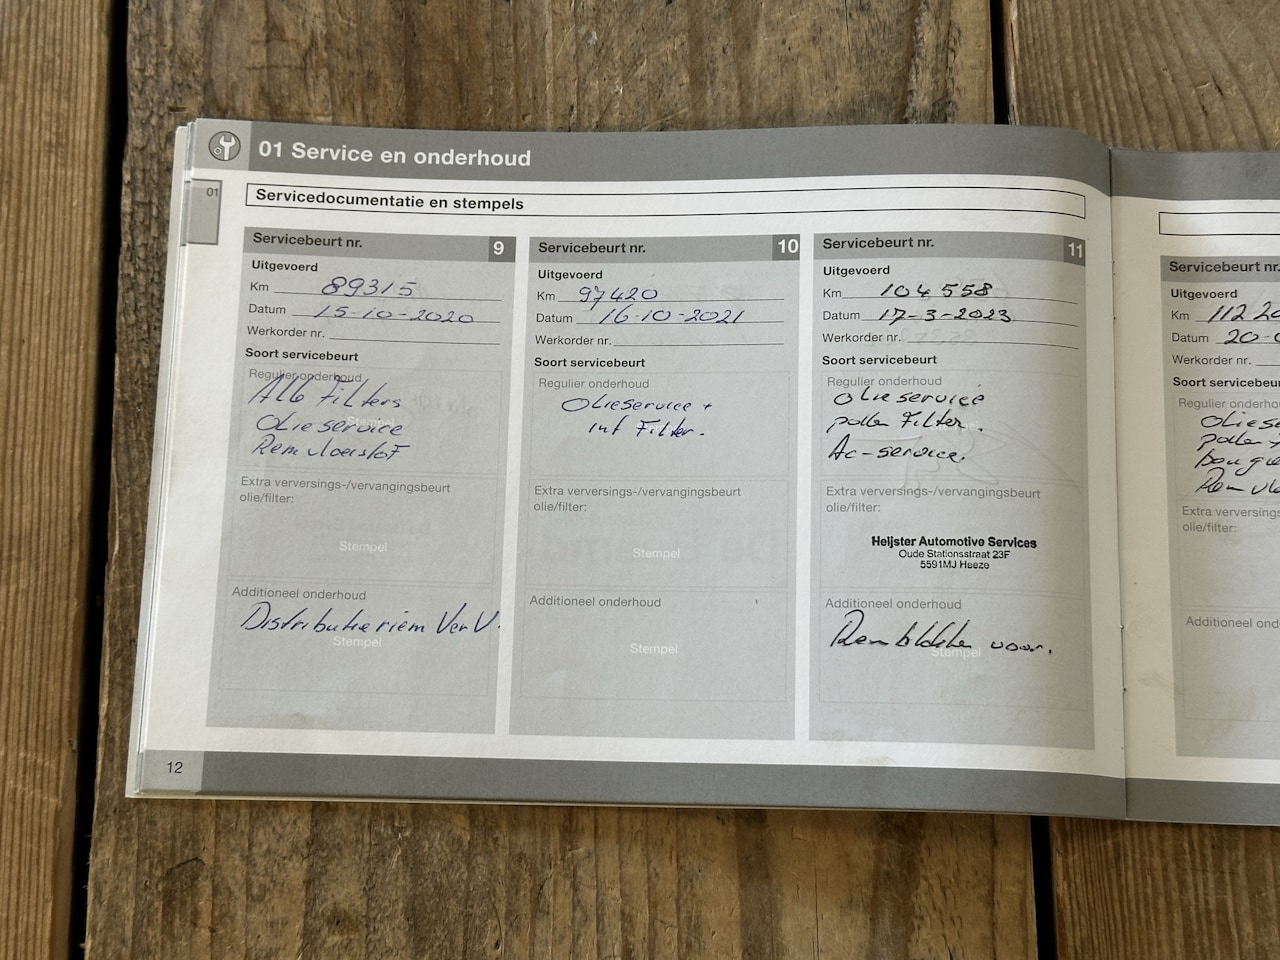 01 Service en onderhoud
01
Servicedocumentatie en stempels
Servicebeurt nr. 9
Uitgevoerd
Km 89315
Datum 15-10-2020
Werkorder nr.
Soort servicebeurt
Regulier onderhoud
Alle Filters
Olieservice
Remvloeistof
Extra verversings-/vervangingsbeurt
olie/filter:
Stempel
Additioneel onderhoud
Distributieriem VerV.
Stempel
12
Servicebeurt nr. 10
Uitgevoerd
Km 97420
Datum 16-10-2021
Werkorder nr.
Soort servicebeurt
Regulier onderhoud
Olieservice +
int Filter.
Extra verversings-/vervangingsbeurt
olie/filter:
Stempel
Additioneel onderhoud
Stempel
Servicebeurt nr. 11
Uitgevoerd
Km 104558
Datum 17-3-2023
Werkorder nr.
Soort servicebeurt
Regulier onderhoud
Olieservice
pollen Filter.
Ac-service.
Extra verversings-/vervangingsbeurt
olie/filter:
Heijster Automotive Services
Oude Stationsstraat 23F
5591MJ Heeze
Additioneel onderhoud
Remblokken voor.
Stempel
Servicebeurt nr.
Uitgevoerd
Km 112 2
Datum 20-
Werkorder nr.
Soort servicebeur
Regulier onderho
Oliese
pollen +
bougie
Rem vl
Extra verversings
olie/filter:
Additioneel ond